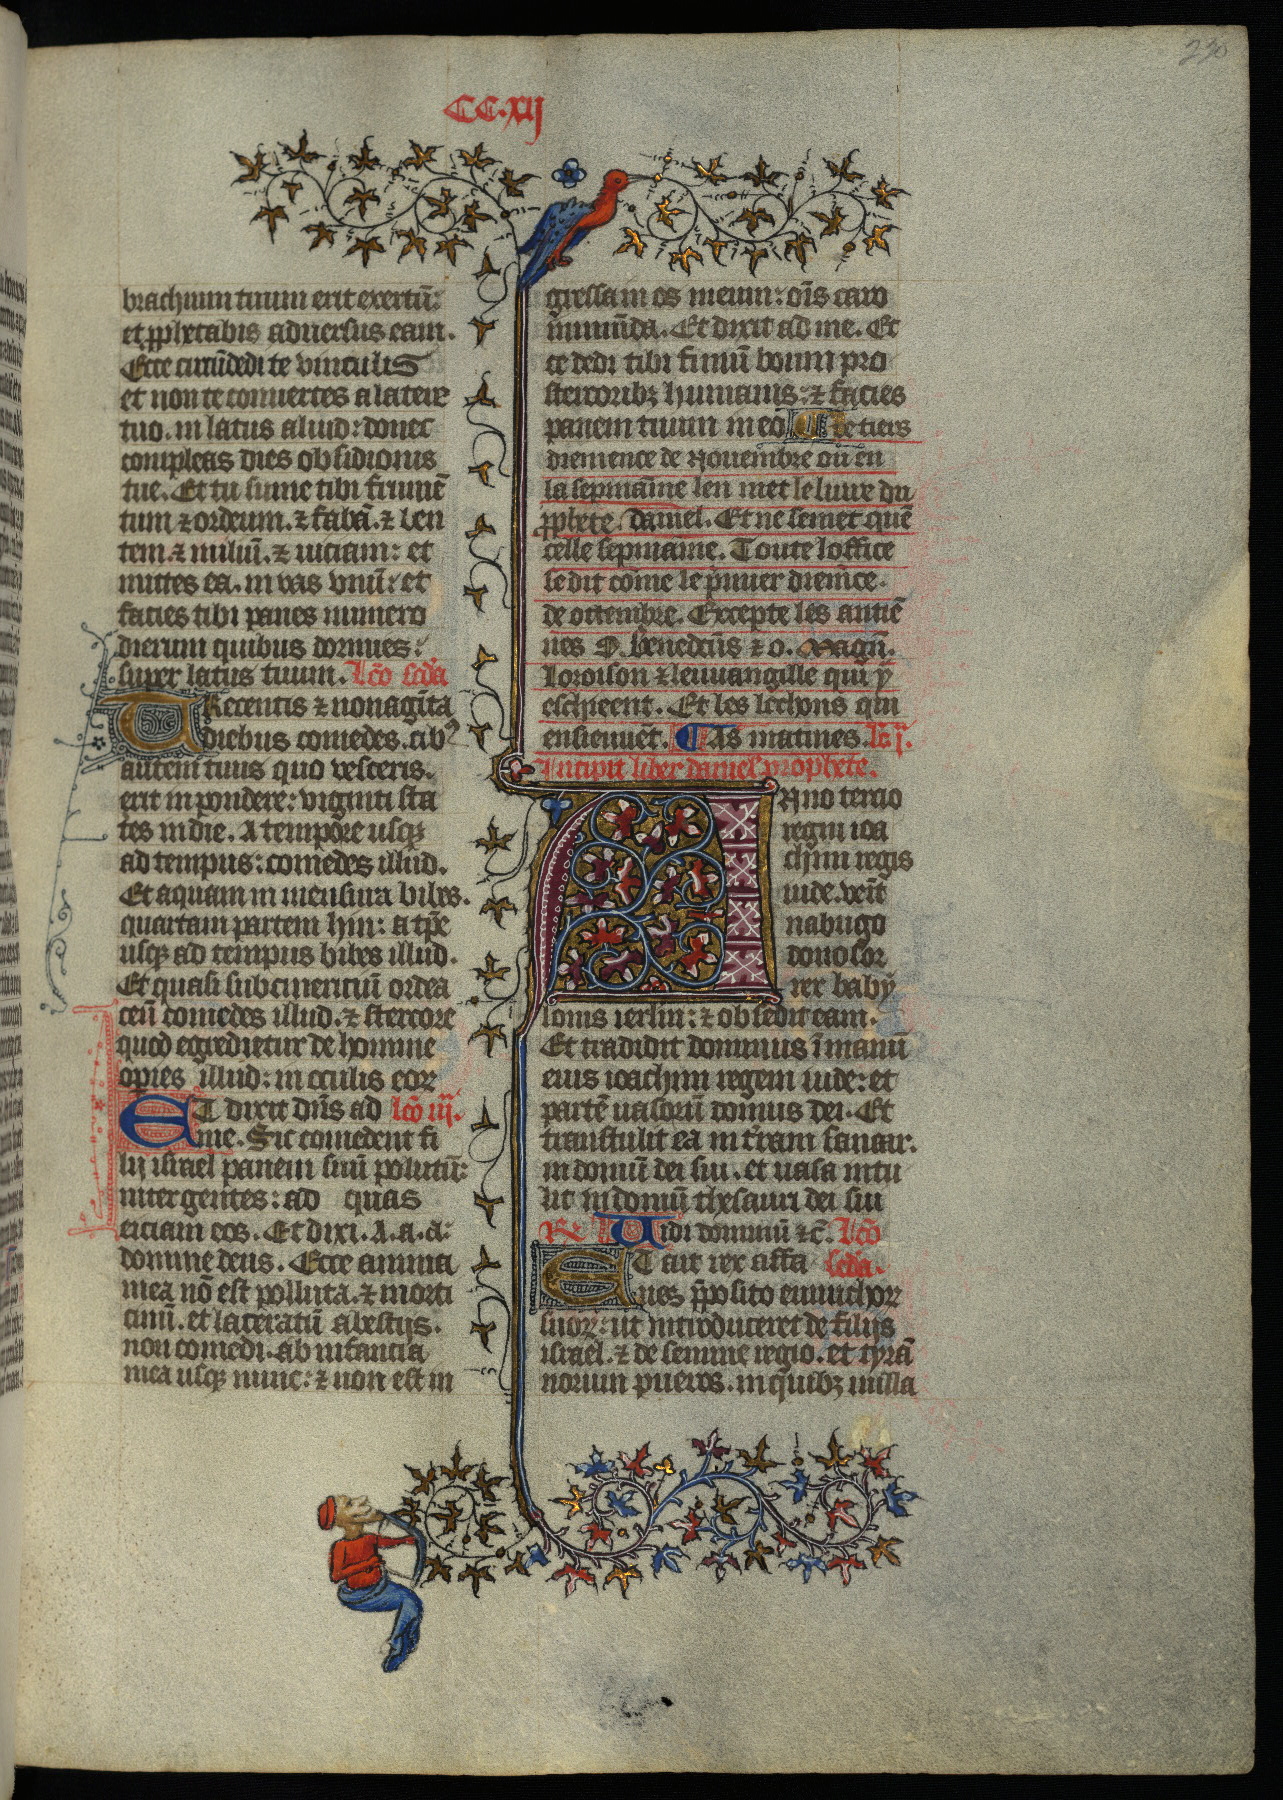 CC.xij
230
brachium tuum erit exertū:
et ꝓphetabis aduersus eam.
Ecce circūdedi te vinculis
et non te conuertes a latere
tuo. in latus aliud: donec
compleas dies obsidionis
tue. Et tu sume tibi frumē
tum ⁊ ordeum. ⁊ fabā. ⁊ len
tem ⁊ miliū. ⁊ uiciam: et
mittes ea. in vas vnū: et
facies tibi panes numero
dierum quibus dormies:
super latus tuum. lcō scd̄a
TRecentis ⁊ nonagīta
diebus comedes. cibꝰ
autem tuus quo vesceris.
erit in pondere: viginti sta
tes in die. A tempore usqꝫ
ad tempus: comedes illud.
Et aquam in mensura bibes.
quartam partem hin: a tp̄e
usqꝫ ad tempus bibes illud.
Et quasi subcinericiū ordea
ceū comedes illud. ⁊ stercore
quod egredietur de homine
opies illud: in oculis eoꝝ
ET dixit dn̄s ad lcō iij.
me. Sic comedent fi
lij israel panem suū pollutū:
inter gentes: ad quas
eiciam eos. Et dixi. A. a. a:
domine deus. Ecce anima
mea nō est polluta. ⁊ morti
cinū. et laceratū a bestijs.
non comedi. ab infantia
mea usqꝫ nunc: ⁊ non est in
gressa in os meum: oīs caro
inmūda. Et dixit ad me. Ec
ce dedi tibi fimū boum pro
stercoribꝫ humanis: ⁊ facies
panem tuum in eo. Le tiers
diemence de Nouembre ou en
la sepmaine len met le liure du
ꝓphete. daniel. Et ne semet quē
celle sepmaine. Toute loffice
se dit cōme le p̄mier diemēce.
de octembre. Excepte les antiē
nes O. benedcūs ⁊ o. Magn̄.
loroison ⁊ leuuangille qui y
eschieent. Et les lechons qui
ensieuuēt. As matines. lc̄ j.
Incipit liber daniel prophete.
ANno tercio
regni ioa
chim regis
iude. venit
nabugo
donosor
rex baby
lonis ierlm̄: ⁊ obsedit eam.
Et tradidit dominus ī manū
eius ioachim regem iude: et
partē uasorū domus dei. Et
transtulit ea in t̄ram sanaar.
in domū dei sui. et uasa intu
lit in domū thesauri dei sui
R̄ Uidi dominū ⁊c̄. lcō
ET ait rex assa scd̄a.
nes p̄posito eunuchoꝝ
suoꝝ: ut introduceret de filijs
israel. ⁊ de semine regio. et tyrā
norum pueros. in quibꝫ nulla